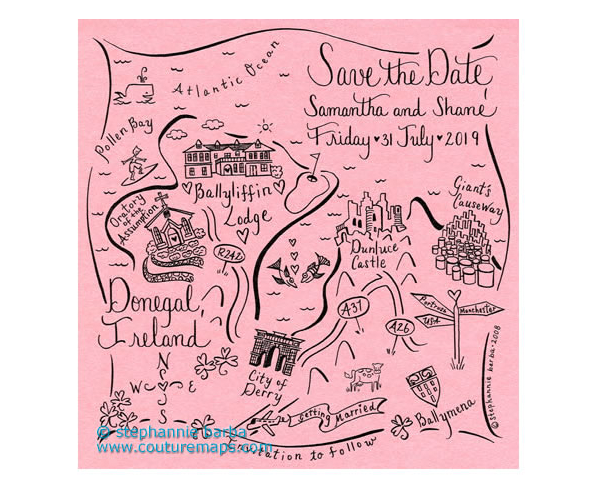 Save the Date
Samantha and Shane
Friday ♥ 31 July ♥ 2019
Atlantic Ocean
Pollen Bay
Ballyliffin
Lodge
Oratory
of the
Assumption
R242
Dunluce
Castle
Giant's
Causeway
Donegal,
Ireland
A37
A26
Portrush
Manchester
USA
N
W E
S
City of
Derry
Getting Married
Ballymena
invitation to follow
© stephannie barba • 2008
© stephannie barba
www.couturemaps.com